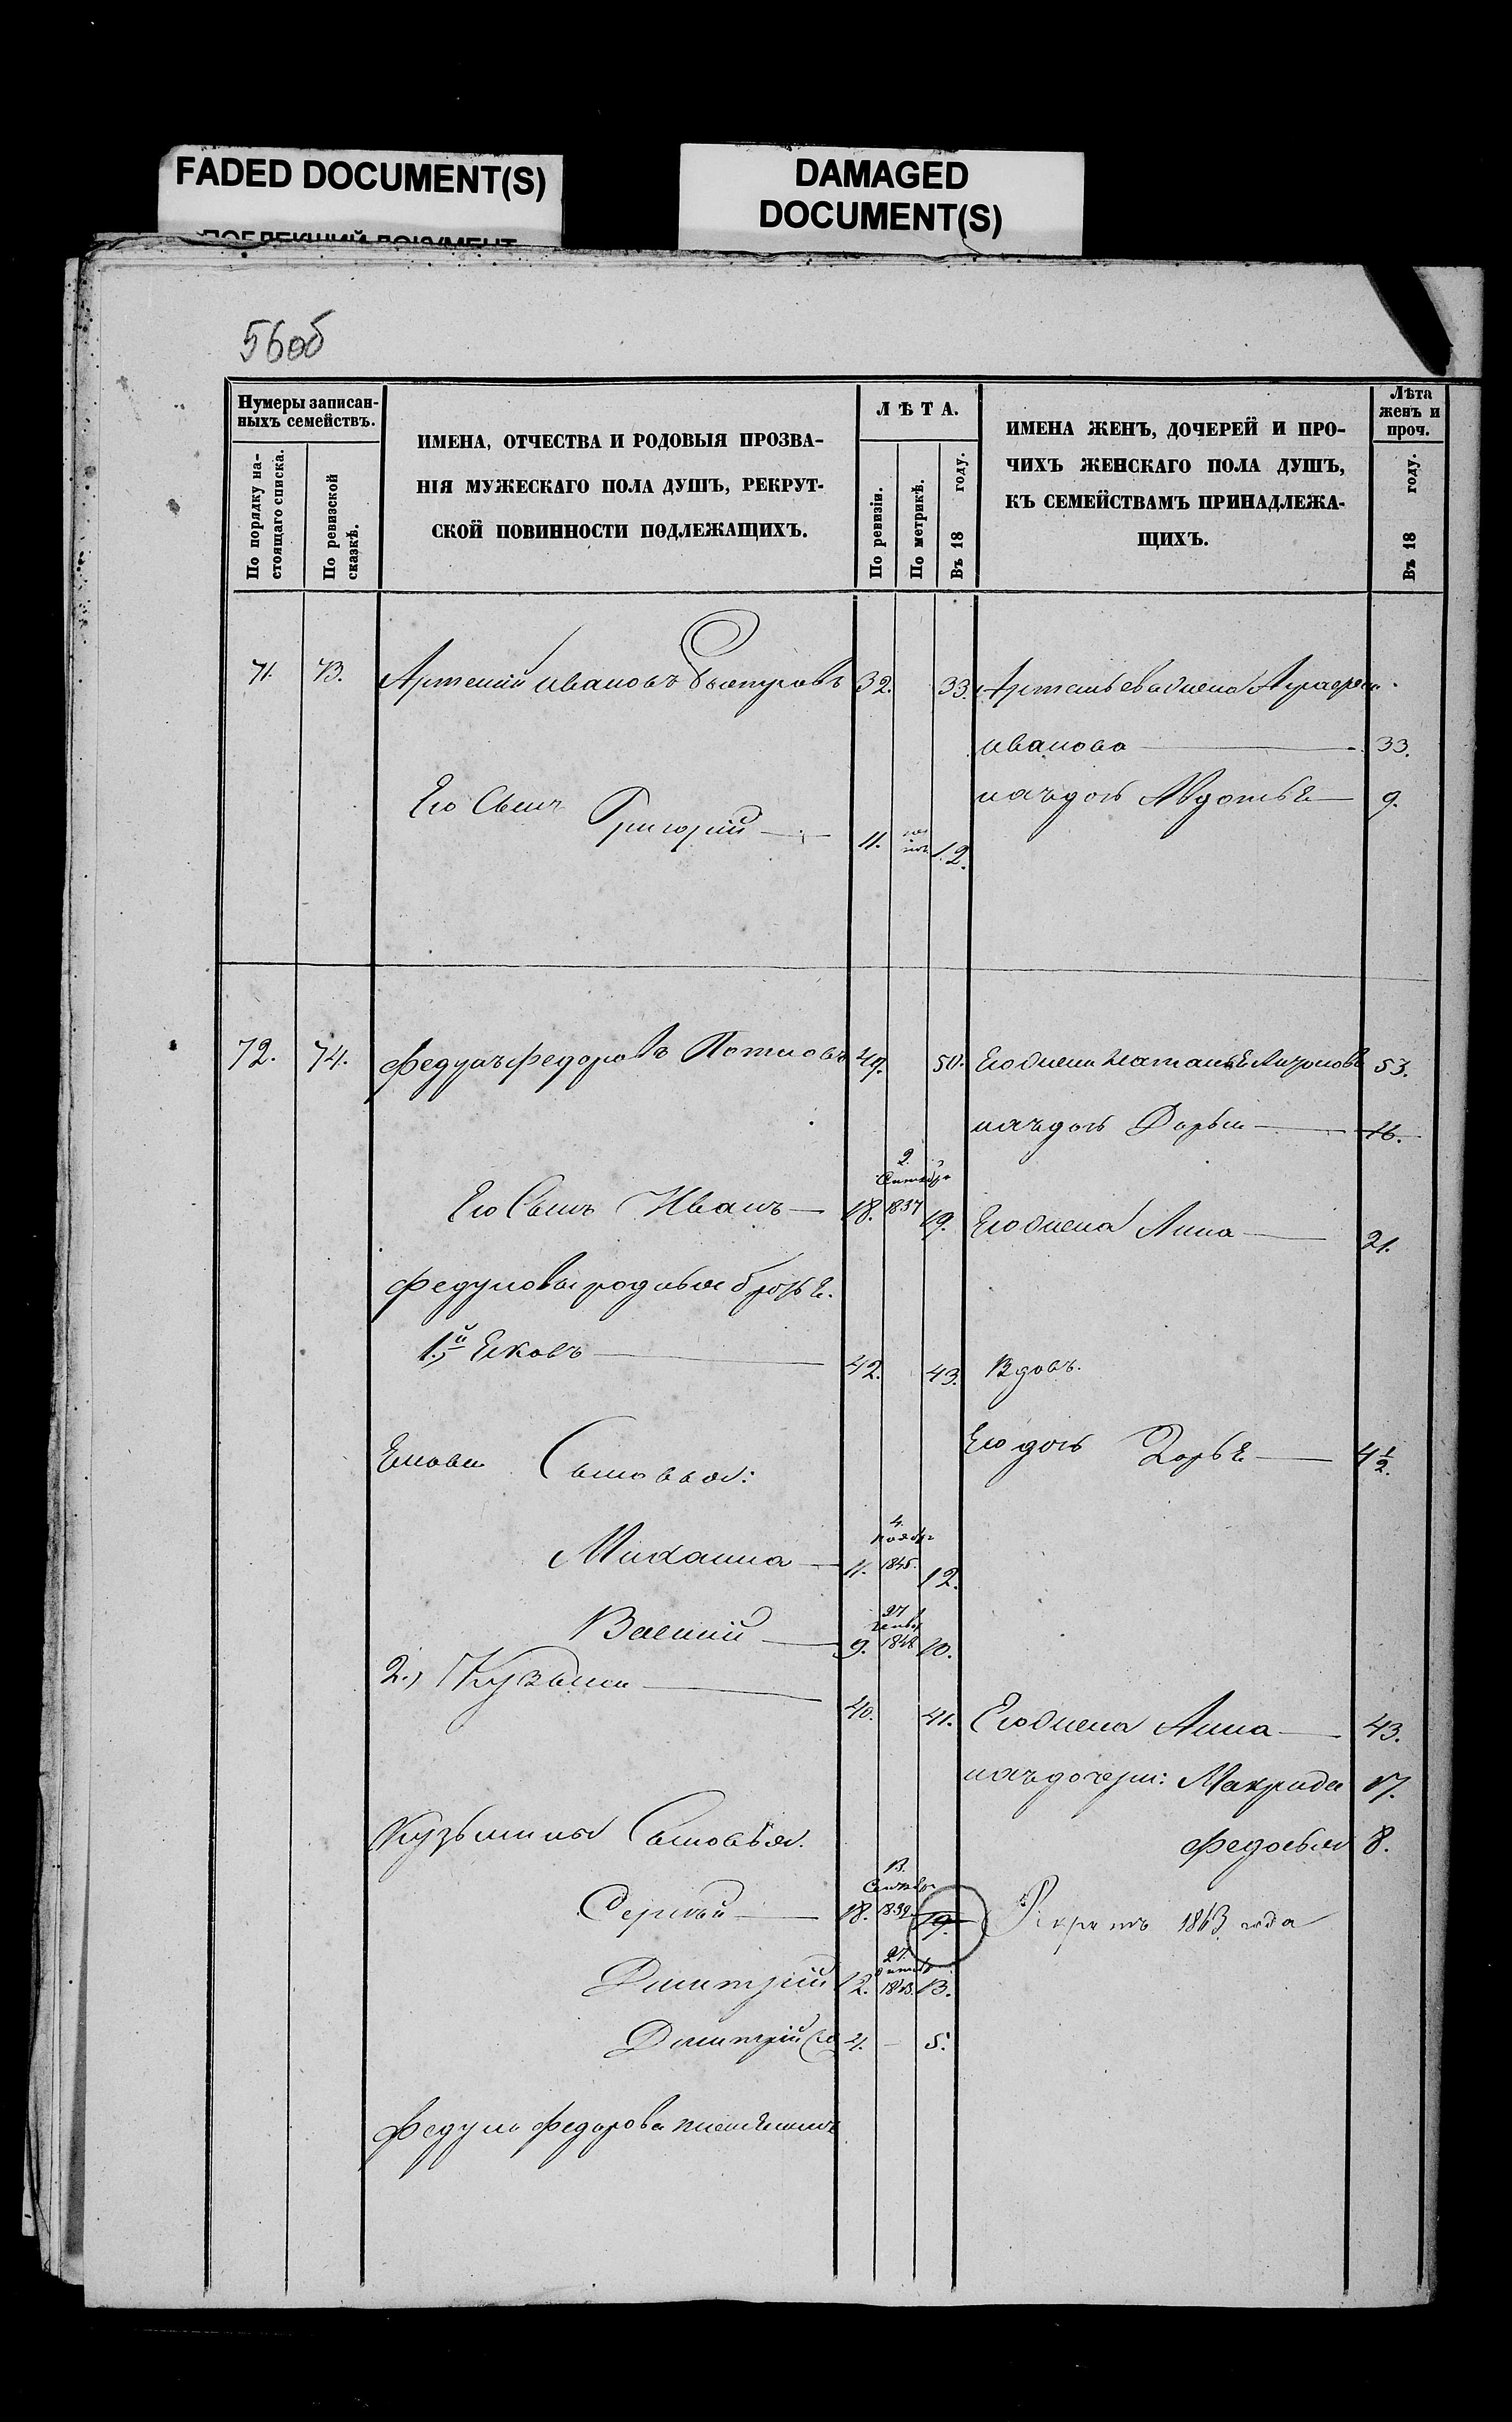 FADED DOCUMENT(S)
DAMAGED
DOCUMENT(S)
56об
Нумеры записан-
ныхъ семействъ.
По порядку на-
стоящаго списка.
По ревизской
сказкѣ.
ИМЕНА, ОТЧЕСТВА И РОДОВЫЯ ПРОЗВА-
НІЯ МУЖЕСКАГО ПОЛА ДУШЪ, РЕКРУТ-
СКОЙ ПОВИННОСТИ ПОДЛЕЖАЩИХЪ.
ЛѢТА.
По ревизіи.
По метрикѣ.
Въ 18 году.
ИМЕНА ЖЕНЪ, ДОЧЕРЕЙ И ПРО-
ЧИХЪ ЖЕНСКАГО ПОЛА ДУШЪ,
КЪ СЕМЕЙСТВАМЪ ПРИНАДЛЕЖА-
ЩИХЪ.
Лѣта
женъ и
проч.
Въ 18 году.
71. 73. Артемій Ивановъ 32. 33. жена
Иванова 33.
ихъ дочь Авдотья 9.
Его Сынъ Григорій 11. 12.
72. 74. Федулъ Федоровъ 49. 50. Его жена Наталья 53.
ихъ дочь Дарья 16.
Его Сынъ Иванъ 18. 1837 19. Его жена Анна 21.
Федуловы родные братья.
1.й Яковъ 42. 43. Вдовъ.
Его дочь Дарья 4 1/2.
Якова Сыновья:
Михаила 11. 4. Ноябр 1845. 12.
Василій 9. 27 Генвар 1848 10.
2., Кузьма 40. 41. Его жена Анна 43.
ихъ дочери: Макрида 17.
Федосья 8.
Кузьмины Сыновья.
Сергѣй 18. 13. Сентябр 1839 19. Рекрутъ 1863 года
Дмитрій 12. 27. 1843. 13.
Дмитрій 4. – 5.
Федула Федорова племянникъ